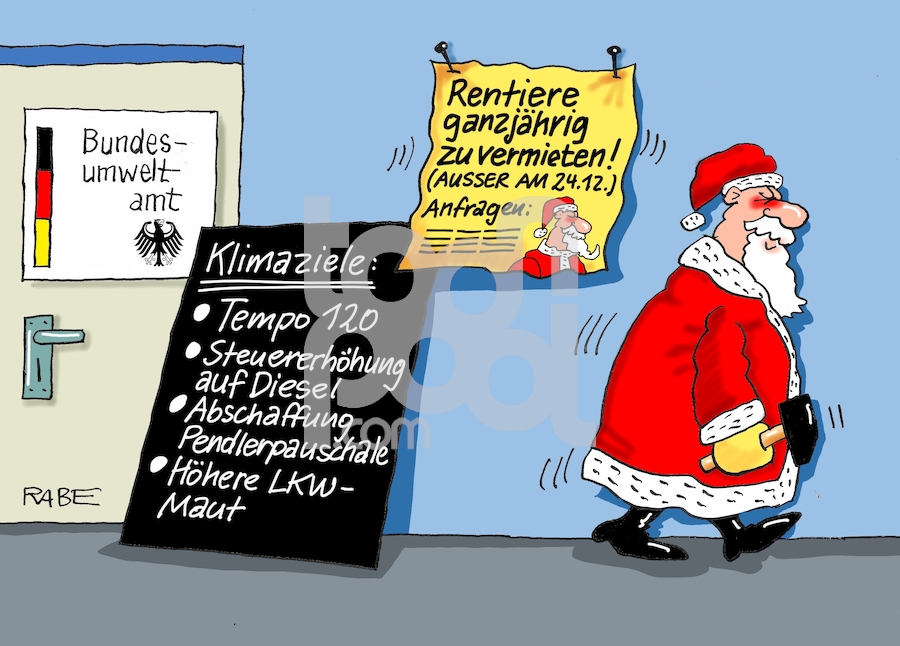 Bundes-
umwelt-
amt
Klimaziele:
Tempo 120
Steuererhöhung
auf Diesel
Abschaffung
Pendlerpauschale
Höhere LKW-
Maut
Rentiere
ganzjährig
zu vermieten!
(AUSSER AM 24.12.)
Anfragen:
RABE
toon
pool
.com